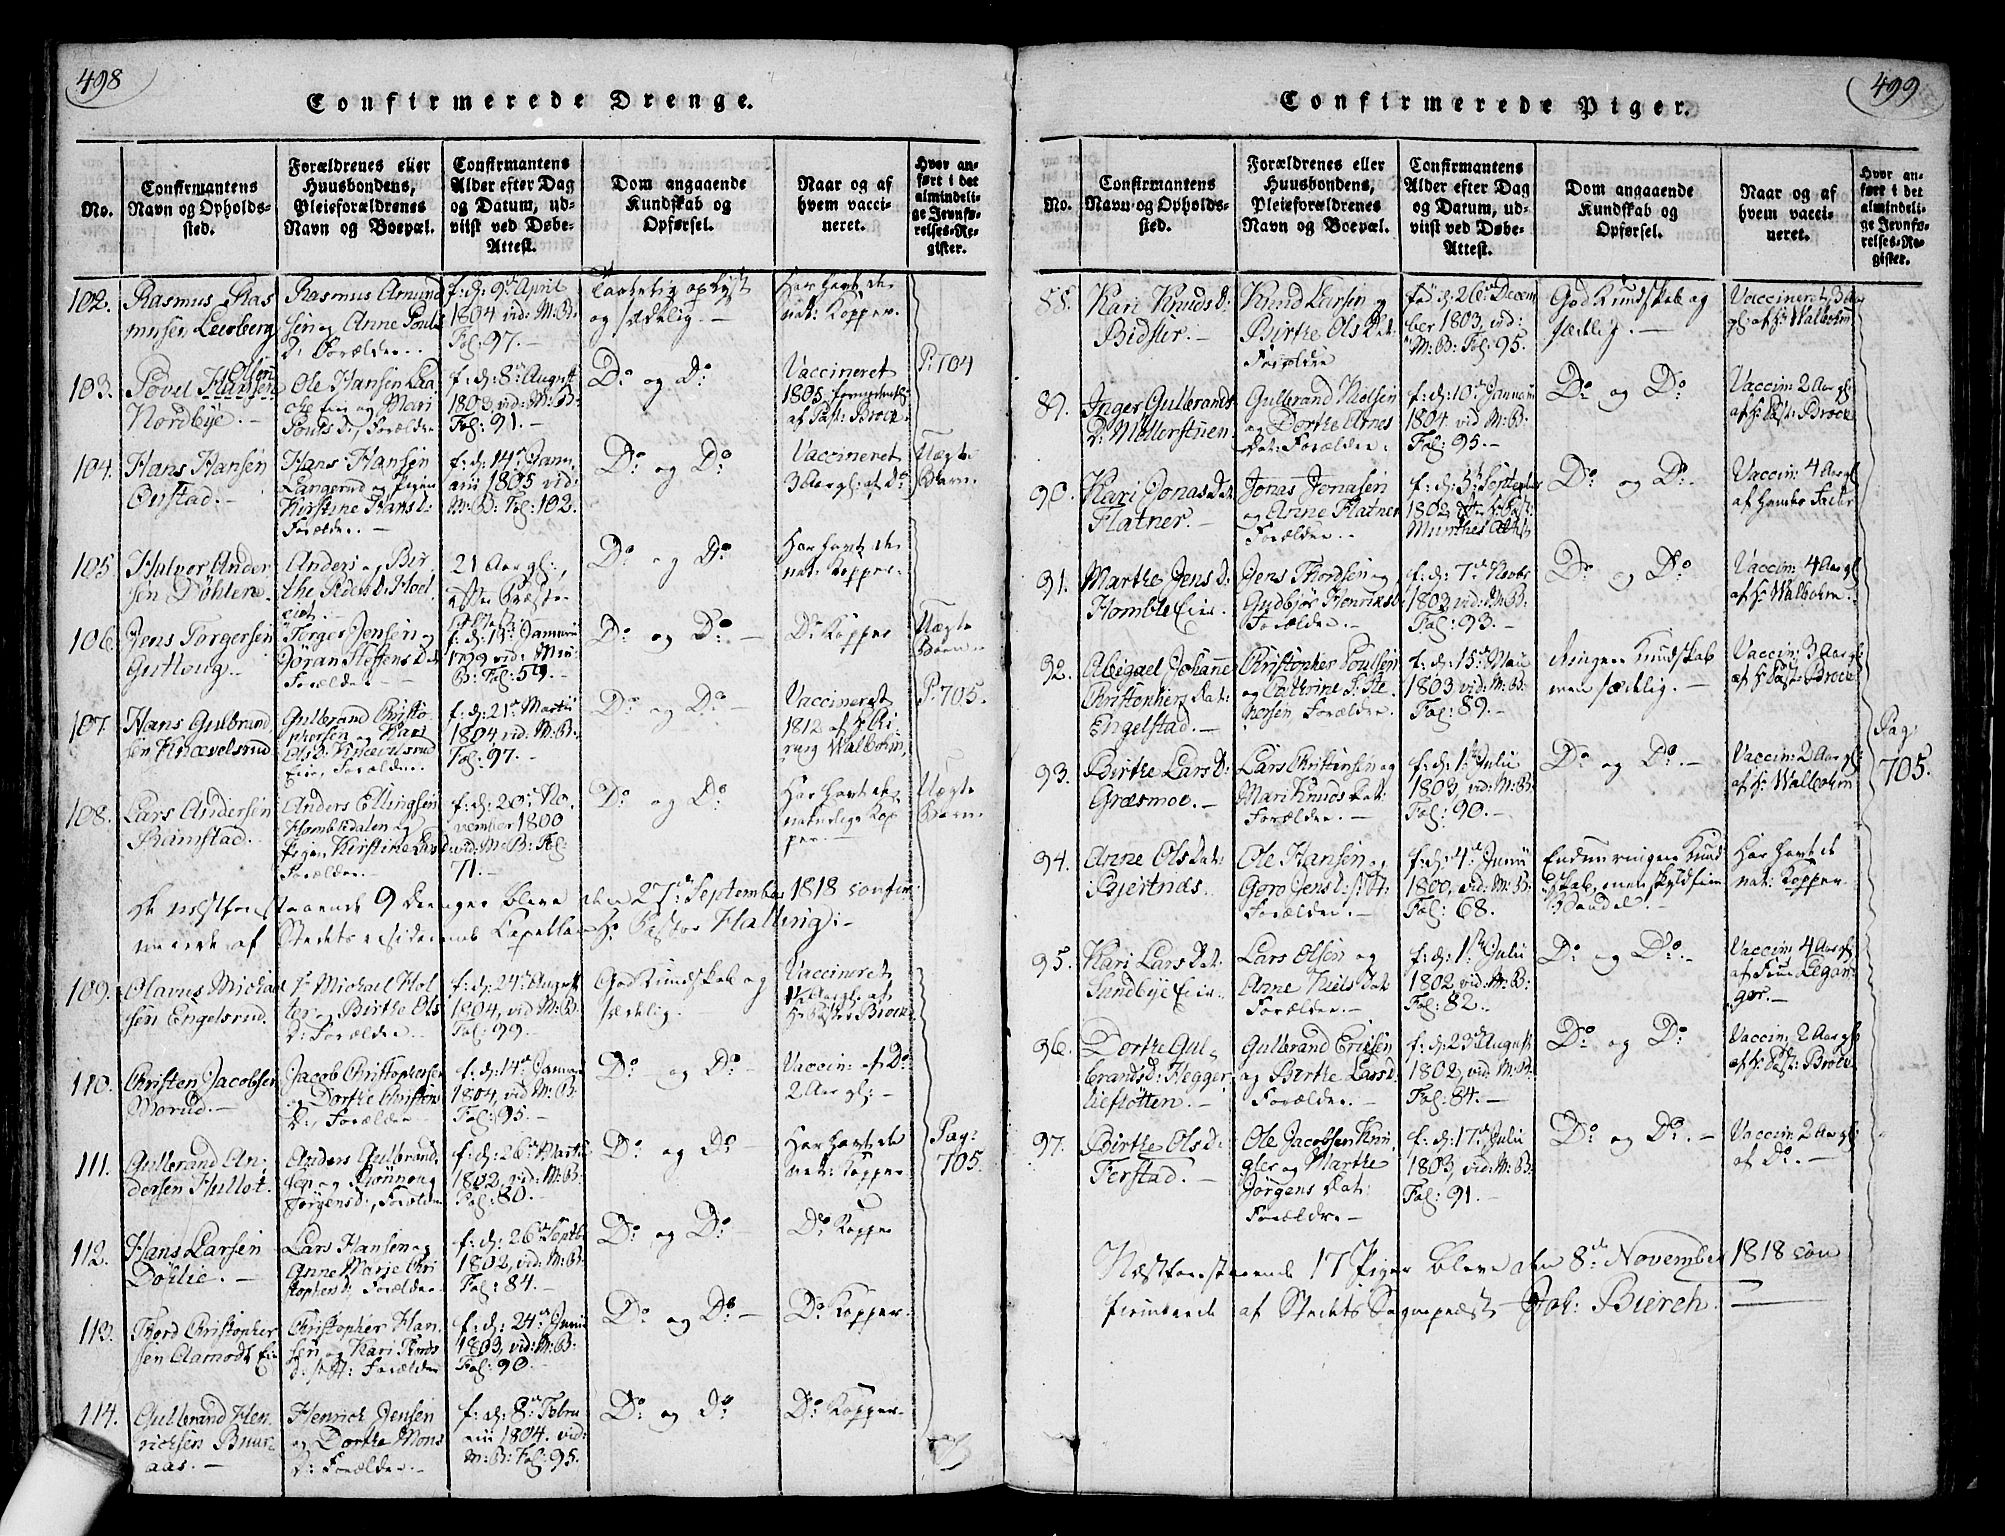 498
Confirmerede Drenge.
No.
Confirmantens
Navn og Opholds-
sted.
Forældrenes eller
Huusbondens,
Pleieforældrenes
Navn og Boepæl.
Confirmantens
Alder efter Dag
og Datum, ud-
viist ved Døbe-
Attest.
Dom angaaende
Kundskab og
Opførsel.
Naar og af
hvem vacci-
neret.
Hvor an-
ført i det
almindeli-
ge Jevnfø-
relses-Re-
gister.
102.
Rasmus Ras
musen Leerberg
Rasmus Amund
sen og Anne Pouls
D: Forældre.
f: d: 9de April
1804 vid: M: B:
Fol: 97.
og sædelig.
Har havt de
nat: Kopper.
103.
Povel Olsen
Nordbye.
Ole Hansen
og Mari
Pouls D:, Forældre
f: d: 8de August
1803 vid: M: B:
Fol: 91.
Do og Do
Vaccineret
1805
af Past: Brock
P: 704
104.
Hans Hansen
Onstad.
Hans Hansen
Langerud og Pigen
Kirstine Hans D:
Forældre.
f: d: 14de Janu
arii 1805 vid:
M: B: Fol: 102.
Do og Do
Vaccineret
3 Aar gl: af Do
Uægte
Barn.
105.
Halvor Ander
sen Döhlen.
Anders og Bir
the Peders D: Hoel
eiet.
21 Aar gl:,
efter Præste
Attest.
Do og Do
Har havt de
nat: Kopper.
106.
Jens Torgersen
Gutloug.
Torger Jensen og
Jöran Steffens D:
Forældre.
f: d: 13de Januarii
1799 vid: Mi:
B: Fol: 59.
Do og Do
Do Kopper
Uægte
Barn.
107.
Hans Gulbrand
sen Knævelsrud
Gulbrand Christo
phersen og Kari
Ols D: Knævelsrud
Eie, Forældre.
f: d: 21de Martii
1804 vid: M: B:
Fol: 97.
Do og Do
Vaccineret
1812 af Chi
rurg Walbohm,
P: 705.
108.
Lars Andersen
Ramstad.
Anders Ellingsen
Hombledalen og
Pigen Kirstine Lars D:
Forældre.
f: d: 20de No
vember 1800
vid: M: B: Fol:
71.
Do og Do
Har havt de
naturlige Kop
per.
Uægte
Barn.
De næstforestaaende 9 Drenge bleve den 27de September 1818 confir
merede af Stedets residerende Capellan Hr Pastor Halling:
109.
Olavus Michael
sen Engelsrud.
Michael Hol
ter og Birthe Ols
D: Forældre.
f: d: 24de August
1804, vid M: B:
Fol: 99.
God Kundskab og
sædelig.
Vaccineret
1½ Aar gl: af
Hr Pastor Brock
110.
Christen Jacobsen
Morud.
Jacob Christophersen
og Dorthe Christens
D:, Forældre
f: d: 14de Januar
1804, vid M: B:
Fol: 95.
Do og Do
Vaccin: af Do
2 Aar gl:
111.
Gulbrand An:
dersen Hullot.
Anders Gulbrand
sen og Rönnoug
Jörgens D:, Forældre
f: d: 26de Martii
1802, vid: M: B:
Fol: 80.
Do og Do
Har havt de
nat: Kopper
Pag:
705.
112.
Hans Larsen
Döhlie.
Lars Hansen og
Anne Marje Chri
stophers D: Forældre.
f: d: 26de Septb
1802, vid: M: B:
Fol: 84.
Do og Do
Do Kopper
113.
Thord Christopher
sen Aamodt Eie
Christopher Han
sen og Kari Thords
D: Forældre
f: d: 24de Junii
1803, vid: M: B:
Fol: 90.
Do og Do
Do Kopper.
114.
Gulbrand Hen
richsen Buur
aas.
Henrich Jensen
og Dorthe Mons
D: Forældre.
f: d: 8de Febru
arii 1804. vid:
M: B: Fol: 95.
Do og Do
Do Kopper.
499
Confirmerede Piger.
No.
Confirmantens
Navn og Opholds-
sted.
Forældrenes eller
Huusbondens,
Pleieforældrenes
Navn og Boepæl.
Confirmantens
Alder efter Dag
og Datum, ud-
viist ved Døbe-
Attest.
Dom angaaende
Kundskab og
Opførsel.
Naar og af
hvem vacci-
neret.
Hvor an-
ført i det
almindeli-
ge Jevnfø-
relses-Re-
gister.
88.
Kari Knuds D:
Bidster.
Knud Larsen og
Birthe Ols Dat:
Forældre
fød d: 26de Decem
ber 1803, vid:
M: B: Fol: 95.
God Kundskab og
sædelig.
Vaccineret 3 Aar
gl: af Hr Walbohm
89.
Inger Gulbrands
D: Möllerstuen.
Gulbrand Nielsen
og Dorthe Arnes
Dat: Forældre.
f: d: 10de Januarii
1804 vid M: B:
Fol: 95.
Do og Do
Vaccin: 2 Aar gl:
af Hr Past: Brock
90.
Kari Jonas Dat:
Flatner.
Jonas Jonasen
og Anne Flatner
Forældre.
f: d: 3de September
1802 efter Hr Past:
Munthes Attest
Do og Do.
Vaccin: 4 Aar gl:
af
91.
Marthe Jens D:
Homble Eie.
Jens Thordsen og
Gudbjör Henriks D:
Forældre.
f: d: 7de Novbr
1803 vid: M: B:
Fol: 93.
Do og Do.
Vaccin: 4 Aar gl:
af Hr Walbohm.
92.
Abigael Johanne
Christophers Dat:
Engelstad.
Christopher Poulsen
og Cathrine
Forældre.
f: d: 15de Mai
1803 vid: M: B:
Fol: 89.
Ringere Kundskab
men sædelig.
Vaccin: 3 Aar gl:
af Hr Past: Brock
93.
Birthe Lars D:
Græsmoe.
Lars Christensen og
Mari Knuds Dat:
Forældre.
f: d: 1ste Julii
1803, vid: M: B:
Fol: 90.
Do og Do.
Vaccin: 2 Aar gl:
af Hr Walbohm
Pag:
705.
94.
Anne Ols Dat:
Gjertnæs.
Ole Hansen og
Goro Jens D:
Forældre.
f: d: 4de Junii
1800, vid: M: B:
Fol: 68.
Endnu ringere Kund
skab, men skyldfrie
Vandel.
Har havt de
nat: Kopper.
95.
Kari Lars Dat:
Sundbye Eie.
Lars Olsen og
Anne Niels Dat:
Forældre.
f: d: 1ste Julii
1802, vid: M: B:
Fol: 82.
Do og Do.
Vaccin: 4 Aar gl:
96.
Dorthe Gul,
brands D: Hegger
lieflötten.
Gulbrand Ericsen
og Birthe Lars D:
Forældre.
f: d: 29de August
1802, vid: M: B:
Fol: 84.
Do og Do
Vaccin: 2 Aar gl:
af Hr Past: Brock
97.
Birthe Ols D:
Ferstad.
Ole Jacobsen
og Marthe
Jörgens Dat:
Forældre.
f: d: 17de Julii
1803, vid: M: B:
Fol: 91.
Do og Do.
Vaccin: 2 Aar gl:
af Do.
Næstforestaaende 17 Piger bleve den 8de November 1818 con
firmerede af Stedets Sognepræst Joh: Bierch.